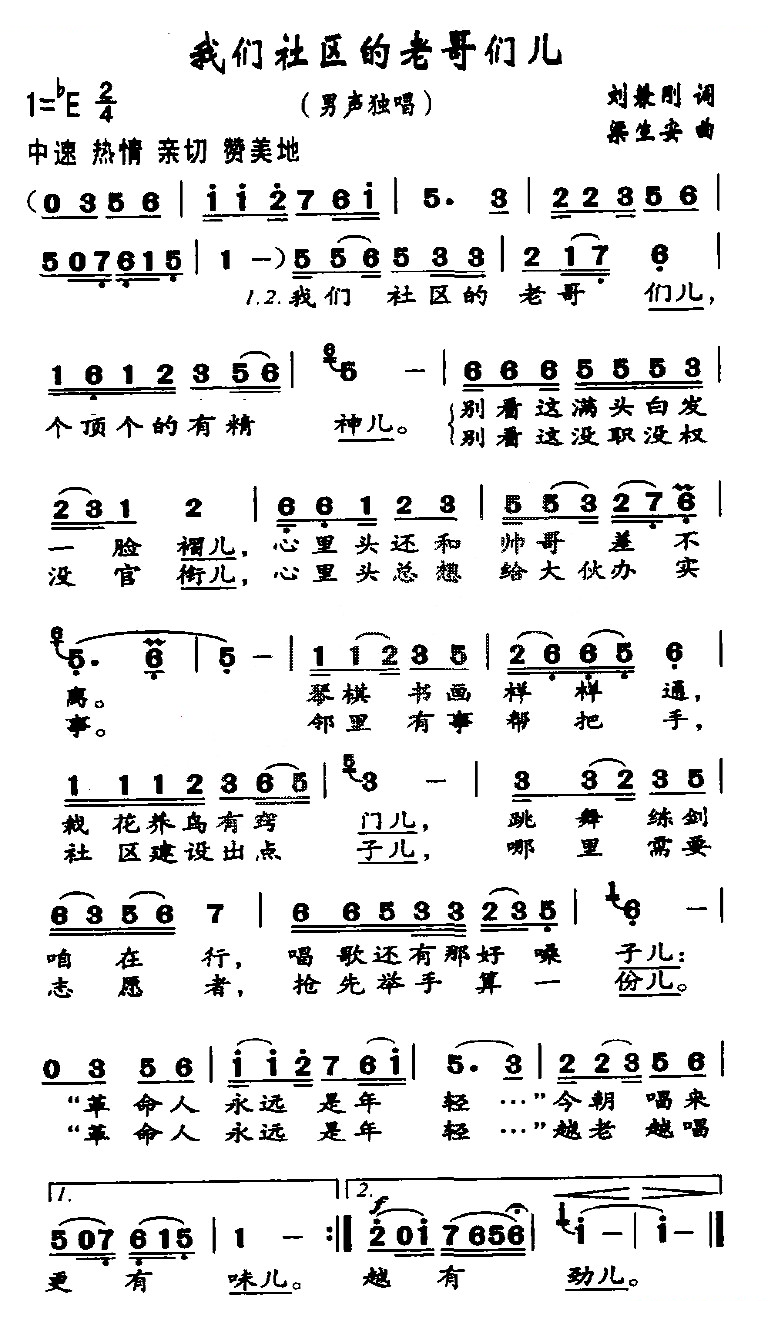 我们社区的老哥们儿
1=♭E 2/4
（男声独唱）
刘兼刚 词
梁生安 曲
中速 热情 亲切 赞美地
(0 3 5 6 | i i 2 7 6 i | 5. 3 | 2 2 2 3 5 6 |
5 0 7 6 1 5 | 1 －) 5 5 6 5 3 3 | 2 1 7 6 |
1.2.我们 社区的 老哥 们儿，
1 6 1 2 3 5 6 | 6 5 － | 6 6 6 5 5 5 3 |
个顶个的有精 神儿。 别看这满头白发
别看这没职没权
2 3 1 2 | 6 6 1 2 3 | 5 5 3 2 7 6 |
一脸褶儿，心里头还和 帅哥 差不
没官衔儿，心里头总想 给大伙办实
6 5. 6 | 5 － | 1 1 2 3 5 | 2 6 6 5 6 |
离。 琴棋 书画 样样 通，
事。 邻里 有事 帮把 手，
1 1 1 2 3 6 5 | 5 3 － | 3 3 2 3 5 |
栽花养鸟有窍 门儿， 跳舞练剑
社区建设出点 子儿， 哪里需要
6 3 5 6 7 | 6 6 5 3 3 2 3 5 | 1 6 － |
咱在行， 唱歌还有那好嗓 子儿：
志愿者， 抢先举手算一 份儿。
0 3 5 6 | i i 2 7 6 i | 5. 3 | 2 2 3 5 6 |
“革命人 永远是年 轻…”今朝唱来
“革命人 永远是年 轻…”越老越唱
1. 2. f
5 0 7 6 1 5 | 1 － :‖ 2 0 i 7 6 5 6 | i i － | i － ‖
更有 味儿。越有 劲儿。